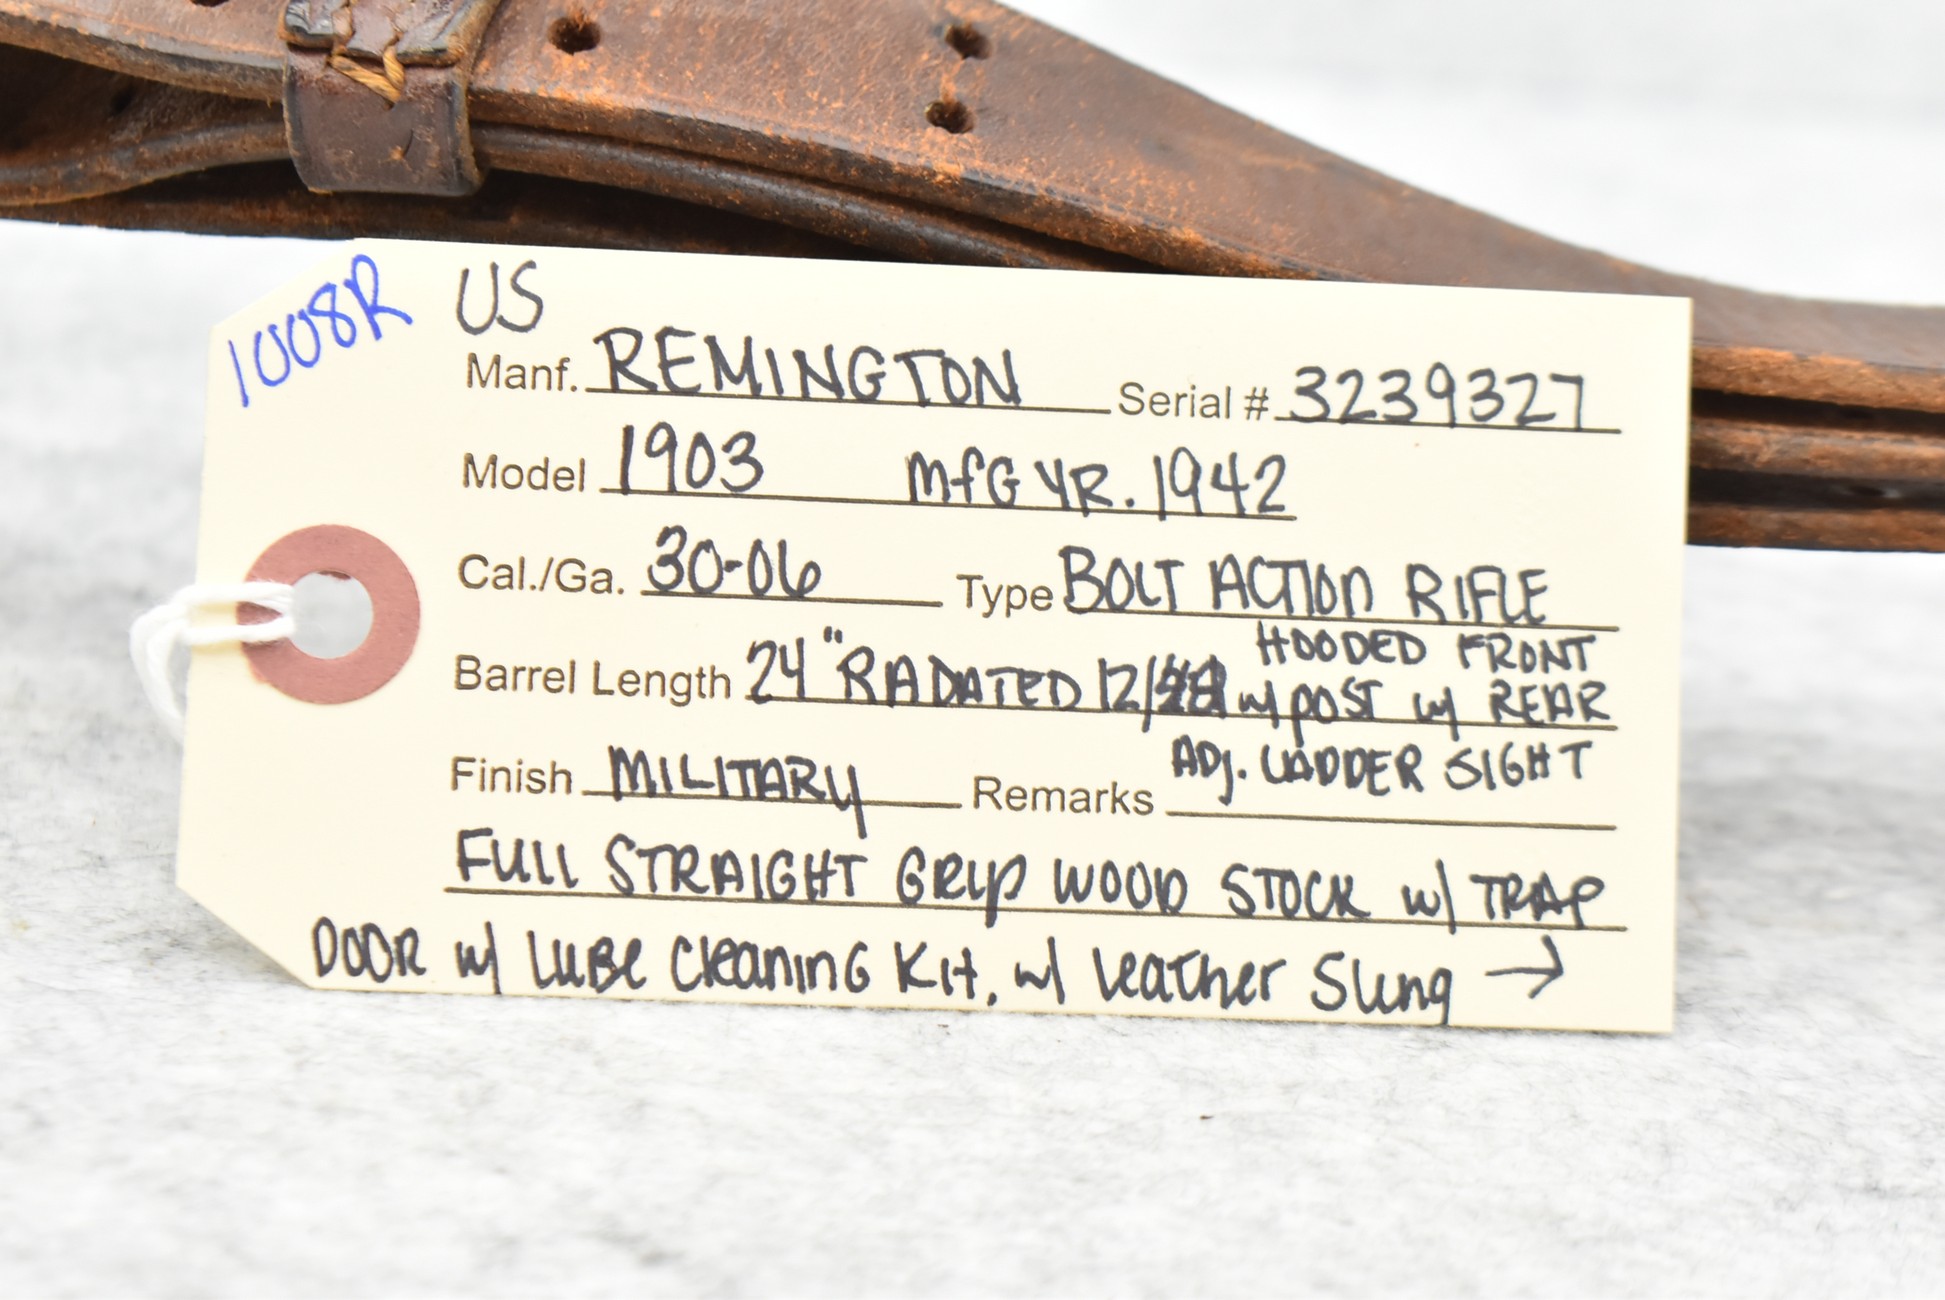 1008R
US
Manf. REMINGTON Serial # 3239327
Model 1903 MFG YR. 1942
Cal./Ga. 30-06 Type BOLT ACTION RIFLE
HOODED FRONT
Barrel Length 24" RA DATED 12/ w/ POST w/ REAR
ADJ. LADDER SIGHT
Finish MILITARY Remarks
FULL STRAIGHT GRIP WOOD STOCK w/ TRAP
DOOR w/ LUBE CLEANING KIT, w/ LEATHER SLING →